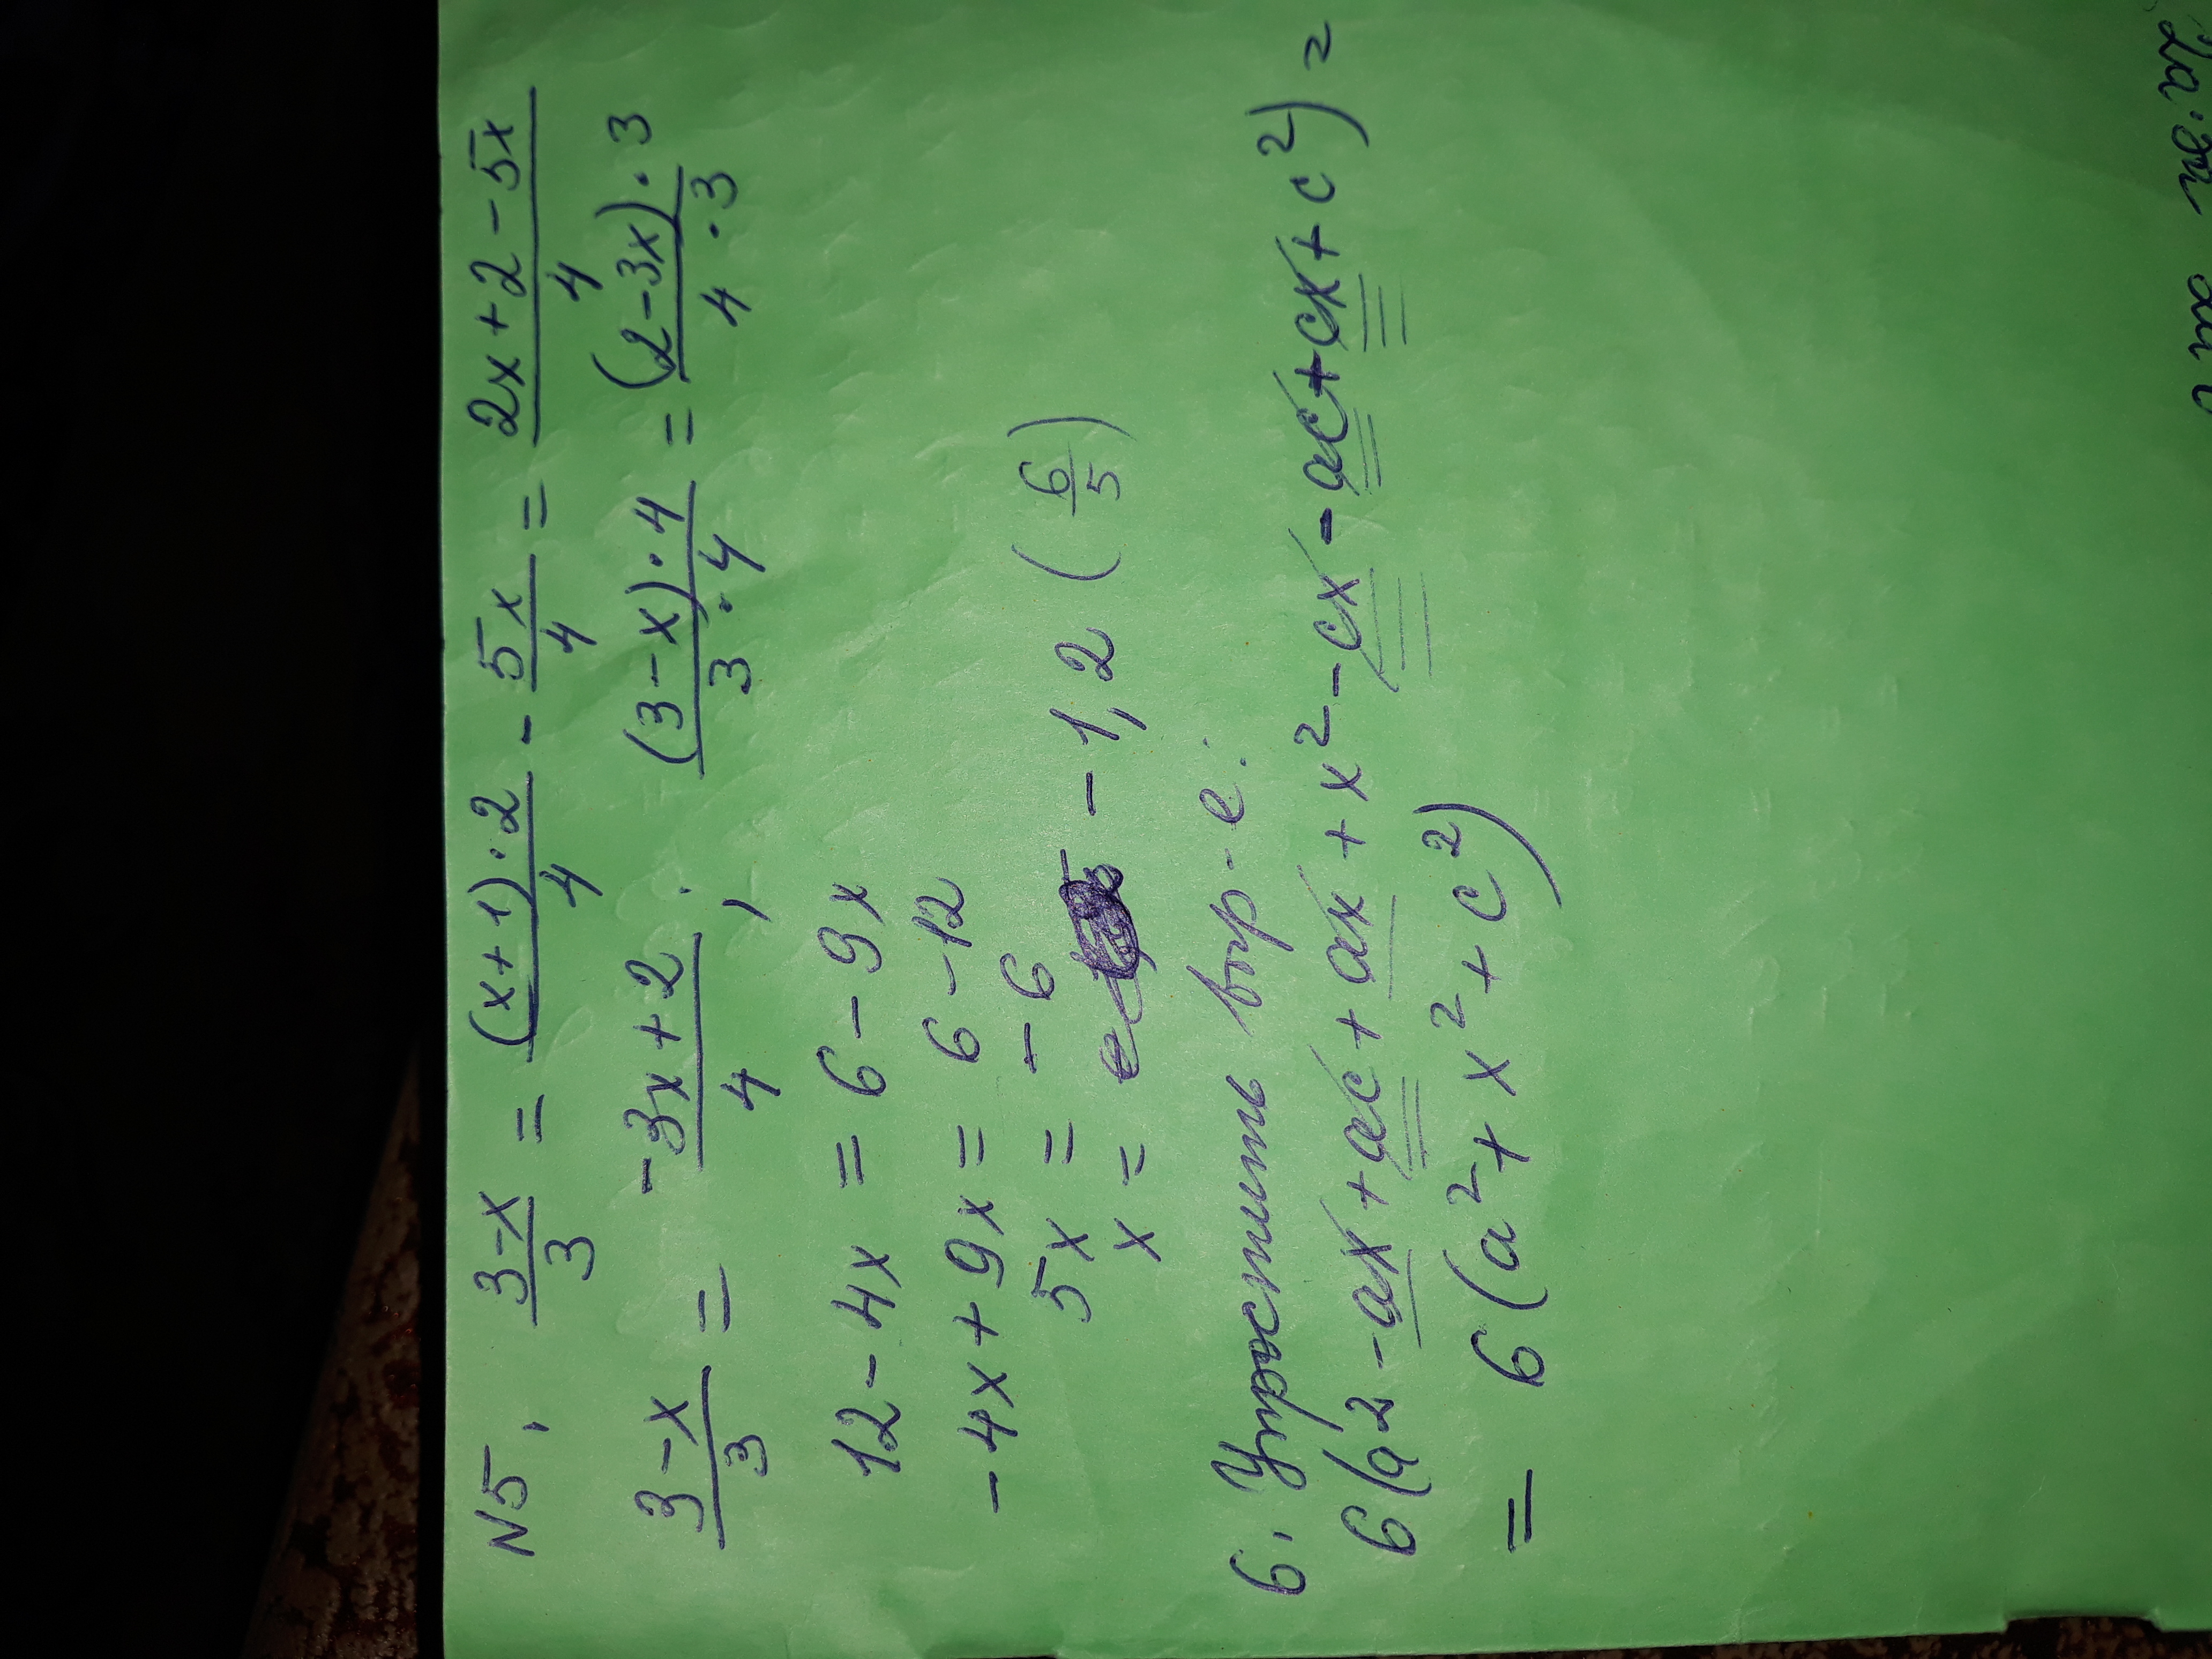 N5. (3-x)/3 = ((x+1)·2)/4 - 5x/4 = (2x+2-5x)/4
(3-x)/3 = (-3x+2)/4; ((3-x)·4)/(3·4) = ((2-3x)·3)/(4·3)
12-4x = 6-9x
-4x+9x = 6-12
5x = -6
x = -1,2 (6/5)
6. Упростить выр-е:
6(a2-ax+ac+ax+x²-cx-ac+cx+c²) =
= 6(a²+x²+c²)